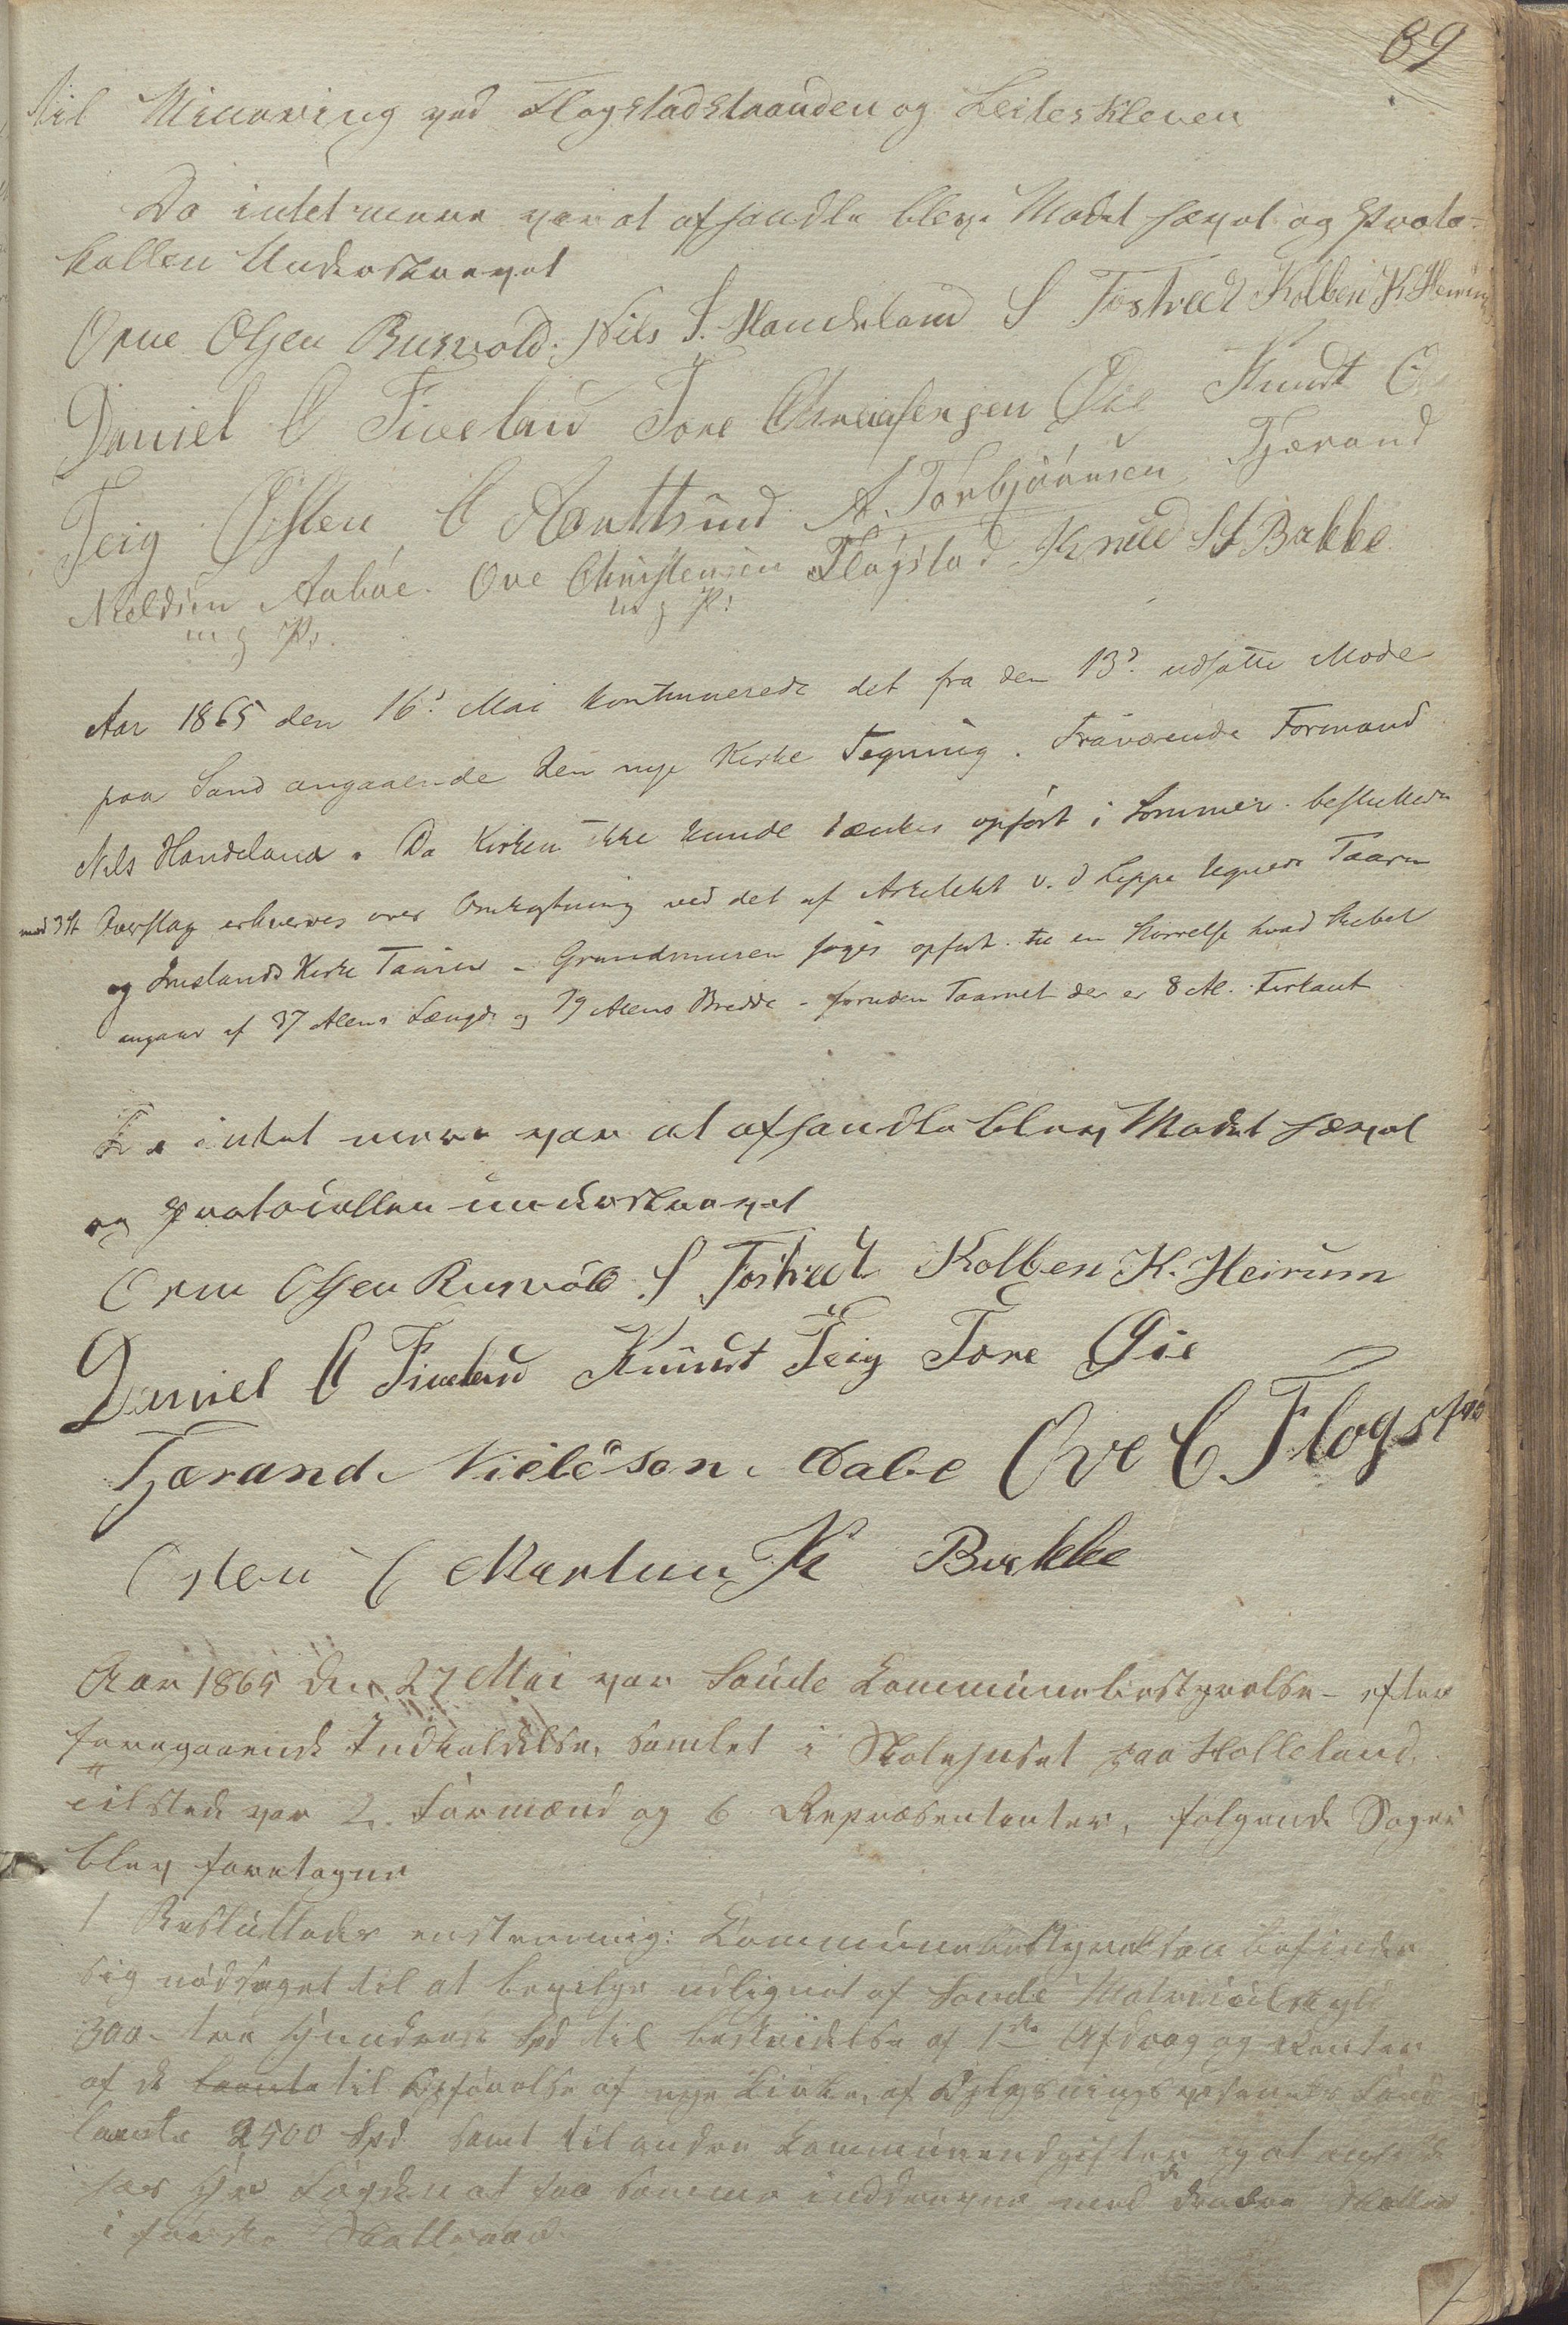 89
til Minering ved Flogstadstranden og Leiteskleven
Da intet mere var at afhandle blev Mødet hævet og Proto-
kollen Underskrevet
Orm Olsen Rusvold. Nils S. Handeland S Tostvedt Kolben K Heirum
Daniel O Fiveland Tore Øie Knudt O
Teig Østen C A. Torbjörnsen Tjerand
Nieldsen Aabøe. Ove Christensen Flogstad Knud St Bakke
m g P. m g P.
Aar 1865 den 16d Mai kontinuerede det fra den 13d udsatte Møde
paa Sand angaaende den nye Kirke Tegning. Fraværende Formand
Nils Handeland. Da Kirken ikke kunde tænkes opført i Sommer besluttedes
Overslag erhverves over ved det af Arkitekt v. d Lippe tegnede Taarn
og Kirke Taarn - Grundmuren søges opført til en Størrelse hvad Skibet
angaar af 37 Alens Længde og 19 Alens Bredde - foruden Taarnet der er 8 Al. Firkant
Da intet mere var at afhandle blev Mødet hævet
og Protocollen underskrevet
Orm Olsen Rusvold S Tostvedt Kolben K. Heirum
Daniel O Fiveland Knudt Teig Tore Øie
Tjærand Nielsson Aabe Ove C. Flogstad
Østen C K Bakke
Aar 1865 den 27 Mai var Sande Kommunebestyrelse - efter
foregaaende Indkaldelse, samlet i Skolehuset paa Holleland,
tilstede var 2. Formænd og 6 Repræsentanter, følgende Sager
blev foretagne
1 Besluttedes enstemmig: Kommunebestyrelsen befinder
sig nødsaget til at bevilge udlignet af Sande Matriculskyld
300 - tre Hundrede Spd til bestridelse af 1ste Afdrag og Renter
af de laante til Opførelse af nye Kirke, af Oplysningsvæsenets Fond
laante 2500 Spd samt til andre Kommuneudgifter og at
hos Hr Fogden at faa samme inddrevne med de andre Skatter
i første